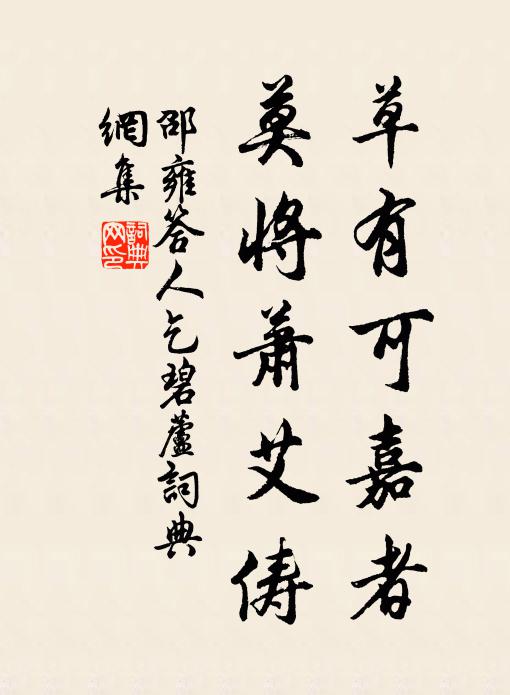 草有可嘉者
莫將蕭艾儔
邵雍答人乞碧蘆詞典
網集
詞典網印